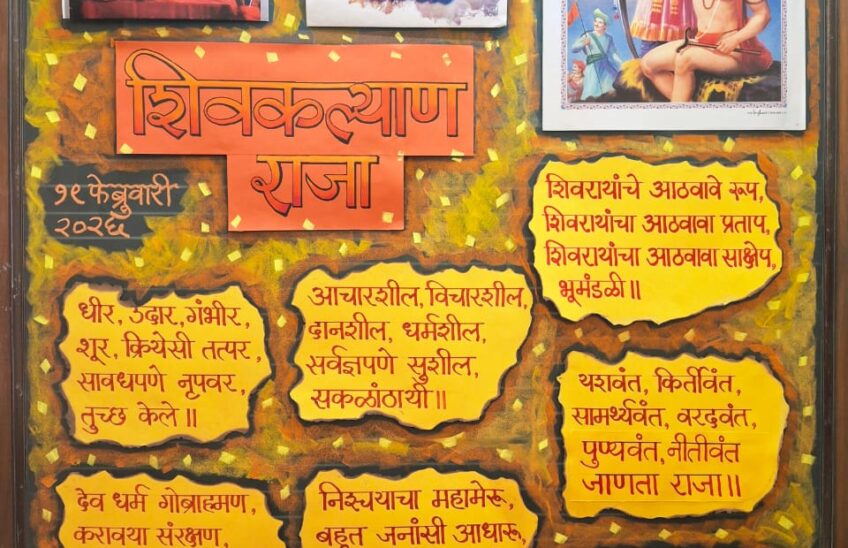 शिवकल्याण
राजा
१९ फेब्रुवारी
२०२६
शिवरायांचे आठवावे रूप,
शिवरायांचा आठवावा प्रताप,
शिवरायांचा आठवावा साक्षेप,
भूमंडळी॥
धीर, उदार, गंभीर,
शूर, क्रियेसी तत्पर,
सावधपणे नृपवर,
तुच्छ केले॥
आचारशील, विचारशील,
दानशील, धर्मशील,
सर्वज्ञपणे सुशील,
सकळांठायी॥
यशवंत, किर्तीवंत,
सामर्थ्यवंत, वरदवंत,
पुण्यवंत, नीतीवंत
जाणता राजा॥
देव धर्म गोब्राह्मण,
करावया संरक्षण,
निश्चयाचा महामेरू,
बहुत जनांसी आधारू,